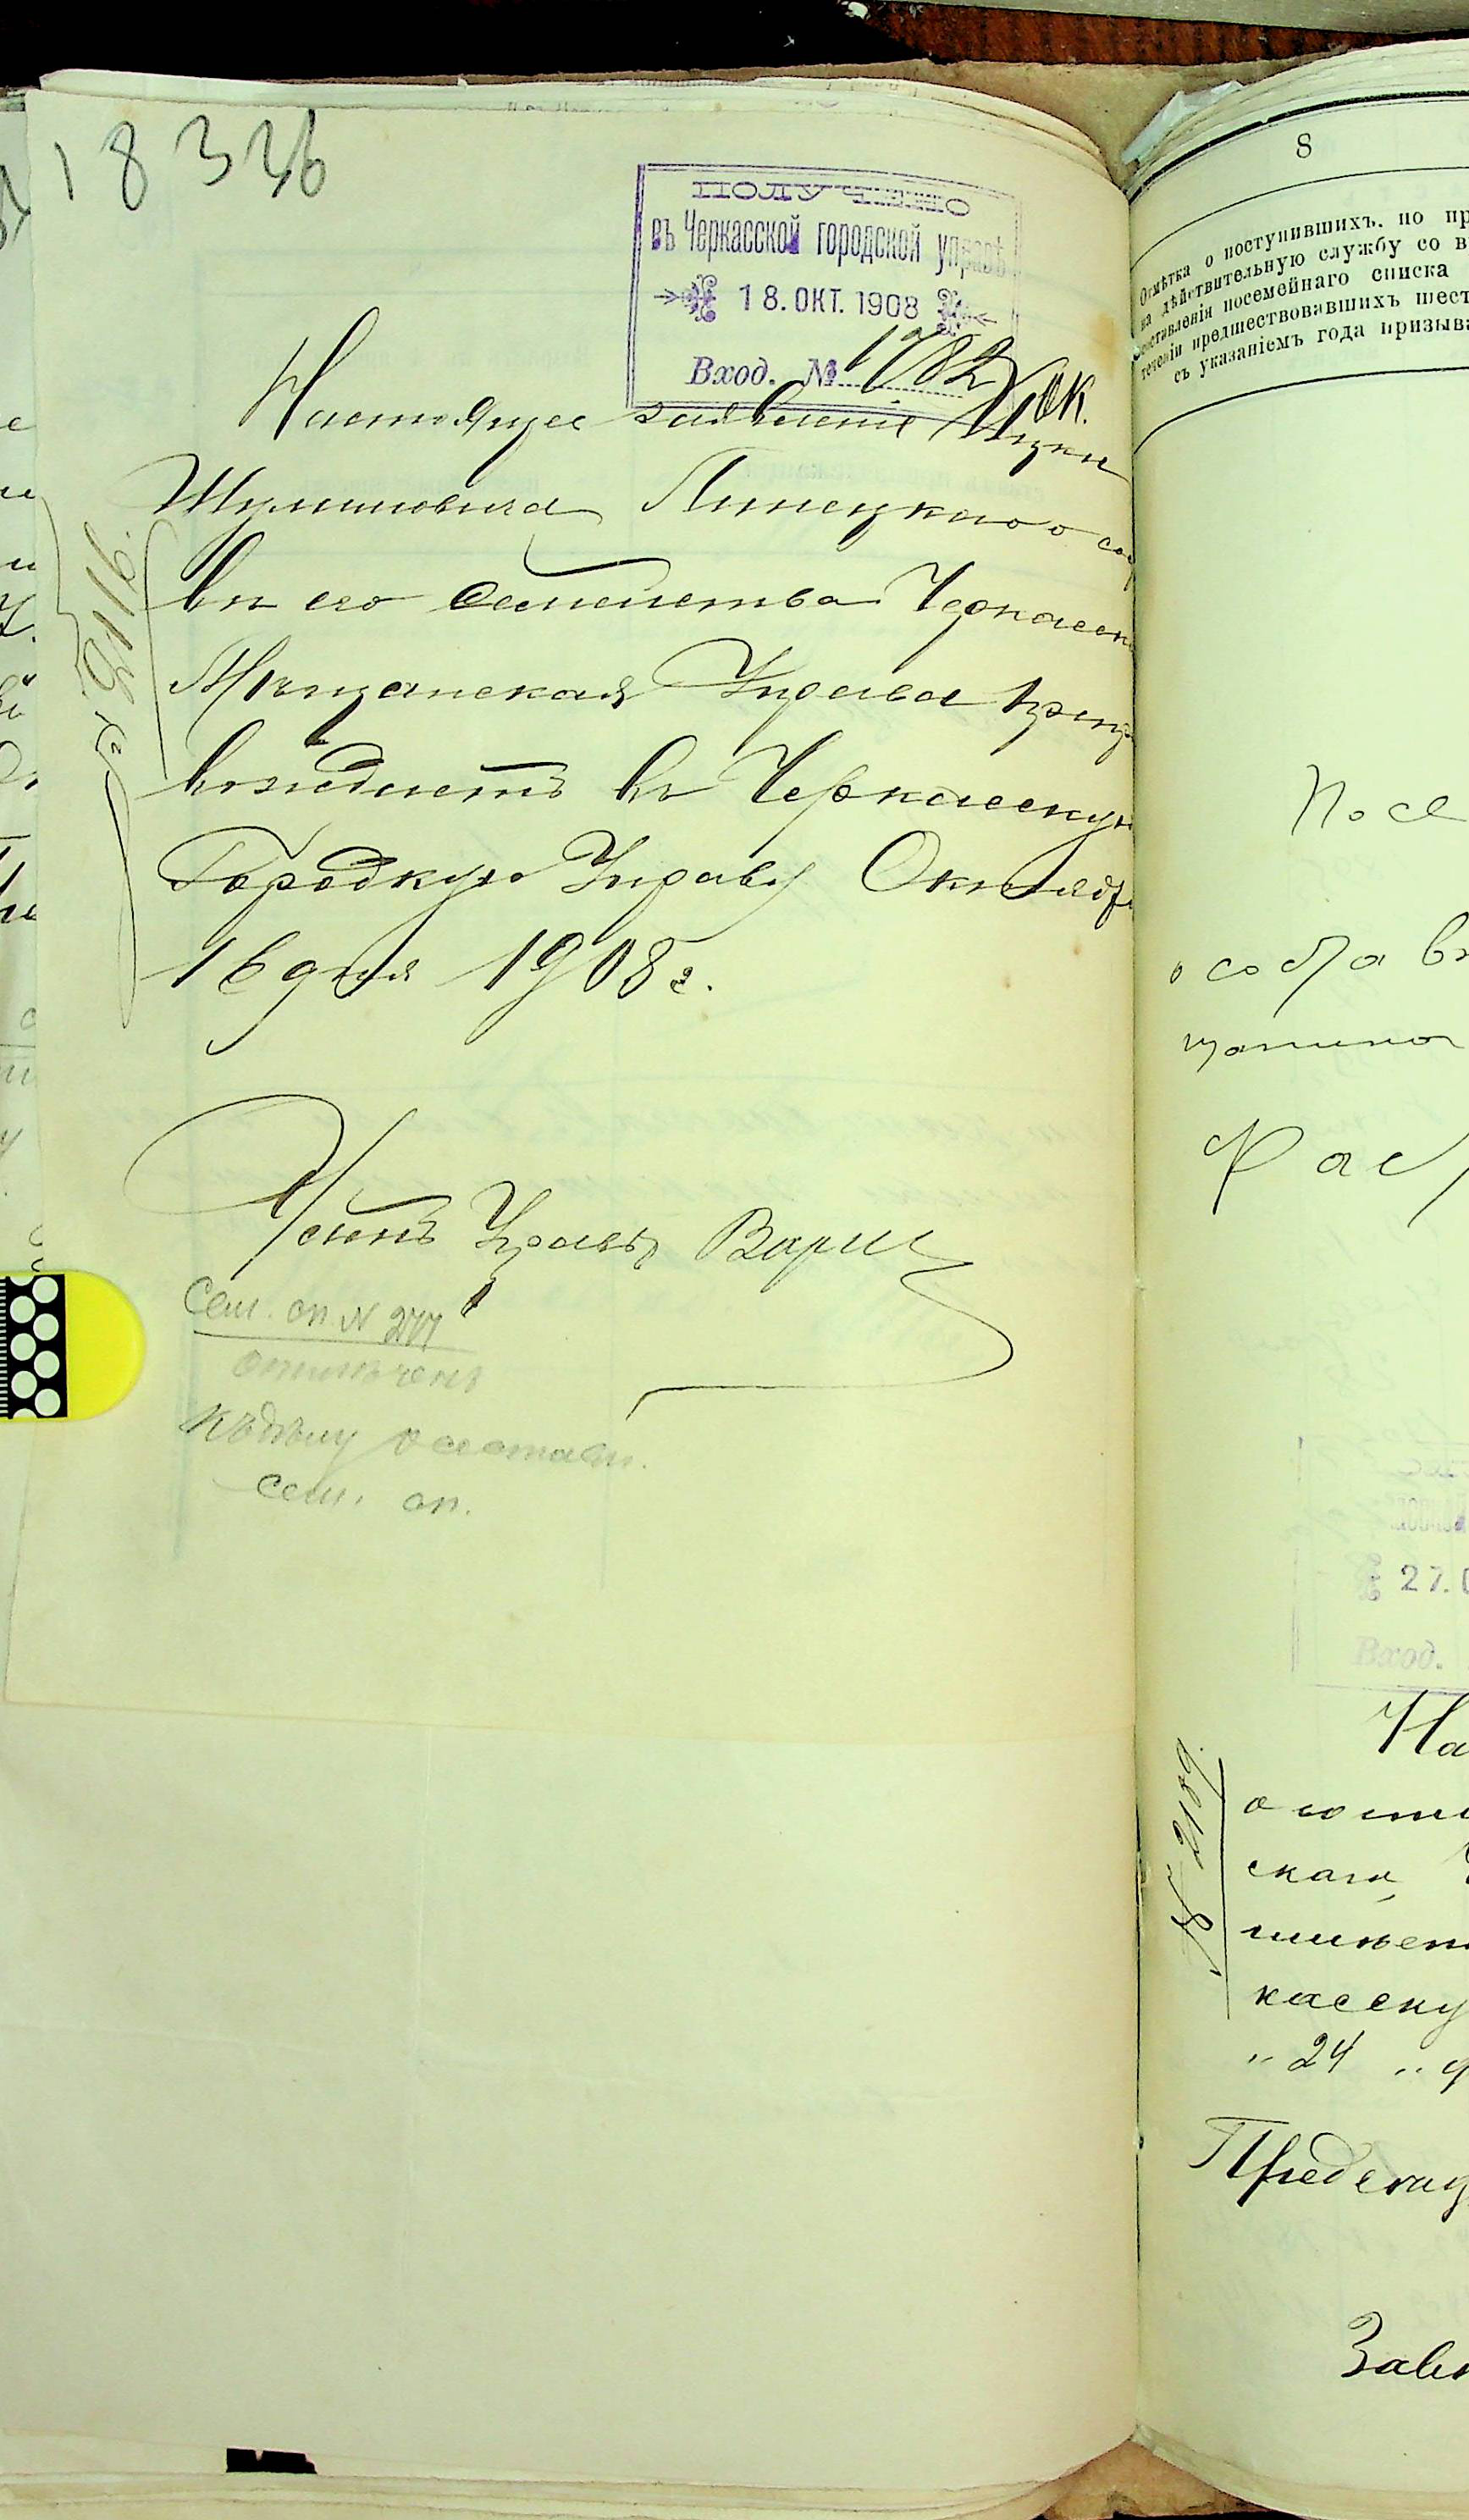 18336
ПОЛУЧЕНО
въ Черкасской городской управѣ
18. ОКТ. 1908
Вход. № 1782/ок.
Настоящее заявленіе Ицки
Шулимовича Линецкаго о сос
вѣ его семейства Черкасск
Мѣщанская Управа препро
вождаетъ въ Черкасскую
Городскую Управу Октября
16 дня 1908 г.
№ 2116.
Членъ Управы
Сем. сп. N 277
отмѣченъ
Къ дѣлу о составл.
сем. сп.
8
Отмѣтка о поступившихъ, по пр
на дѣйствительную службу со в
составленія посемейнаго списка
теченіи предшествовавшихъ шест
съ указаніемъ года призыва
Посе
особа въ
щанина
27.
Вход.
№ 2189.
На
о сост
скаго
касску
„ 24 „ д
Предсѣд